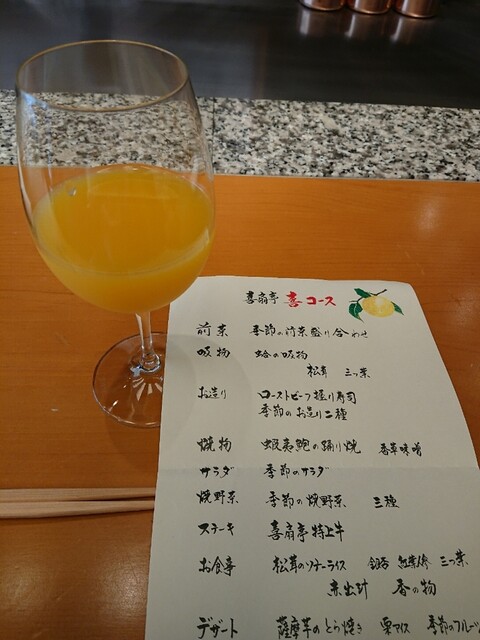 喜扇亭 喜コース
前菜 季節の前菜盛り合わせ
吸物 蛤の吸物
松茸 三つ葉
お造り ローストビーフ握り寿司
季節のお造り二種
焼物 蝦夷鮑の踊り焼 香草味噌
サラダ 季節のサラダ
焼野菜 季節の焼野菜 三種
ステーキ 喜扇亭特上牛
お食事 松茸のソテーライス 銀杏 紅葉人参 三つ葉
赤出汁 香の物
デザート 薩摩芋のどら焼き 栗アイス 季節のフルーツ